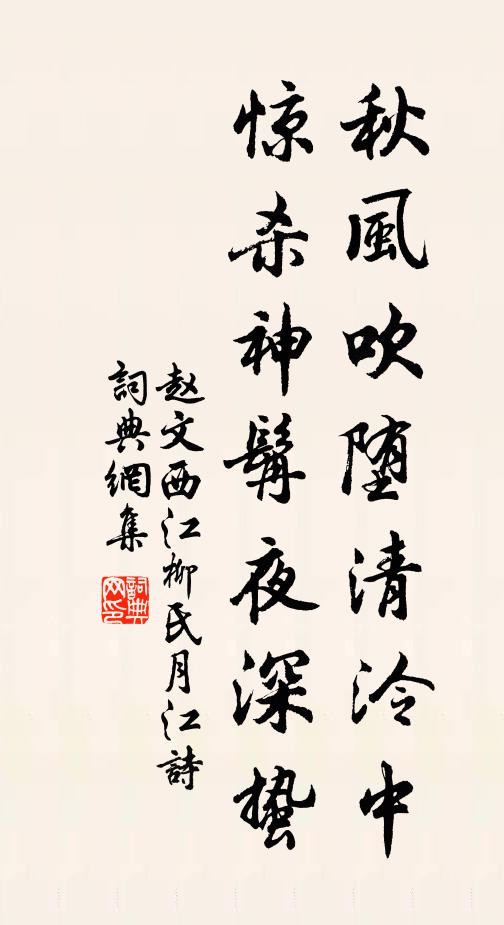 秋風吹堕清泠中
惊杀神髯夜深蛰
赵文西江柳氏月江詩
詞典網集
詞典网印